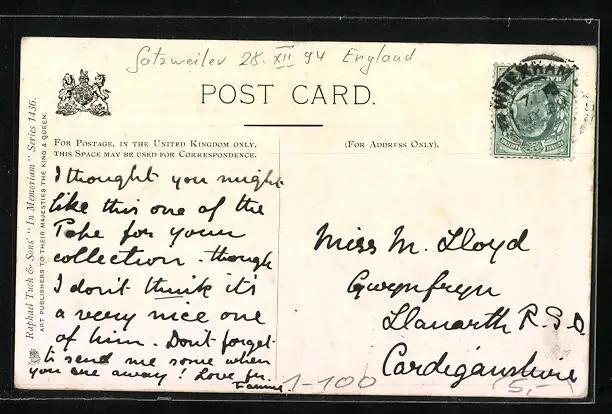 Satzweiler 28. XII 94 England
POST CARD.
WREXHAM
FOR POSTAGE, IN THE UNITED KINGDOM ONLY,
THIS SPACE MAY BE USED FOR CORRESPONDENCE.
(FOR ADDRESS ONLY).
Raphael Tuck & Sons' "In Memoriam" Series 1436.
ART PUBLISHERS TO THEIR MAJESTIES THE KING & QUEEN.
I thought you might
like this one of the
Pope for your
collection - though
I don't think it's
a very nice one
of him. Don't forget
to send me some when
you are away! Love fr.
Fannie.
Miss M. Lloyd
Gwynfryn
Llanarth R.S.O
Cardiganshire
1-100
5,-